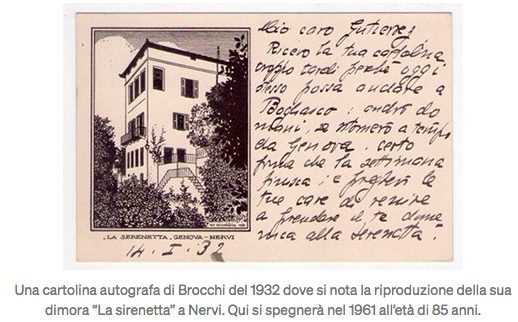 Mio caro Gutierrez
Ricevo la tua cartolina
troppo tardi perchè oggi
stesso possa andare a
Bogliasco: andrò do
mani, se ritornerò a tempo
da Genova. Certo
prima che la settimana
e pregherò la
tua di venire
a prendere il te dome
nica alla Serenetta.
„LA SERENETTA„ GENOVA-NERVI
14. I. 32
Una cartolina autografa di Brocchi del 1932 dove si nota la riproduzione della sua
dimora “La sirenetta” a Nervi. Qui si spegnerà nel 1961 all’età di 85 anni.